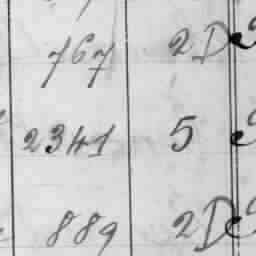 767 2D
2341 5
889 2D